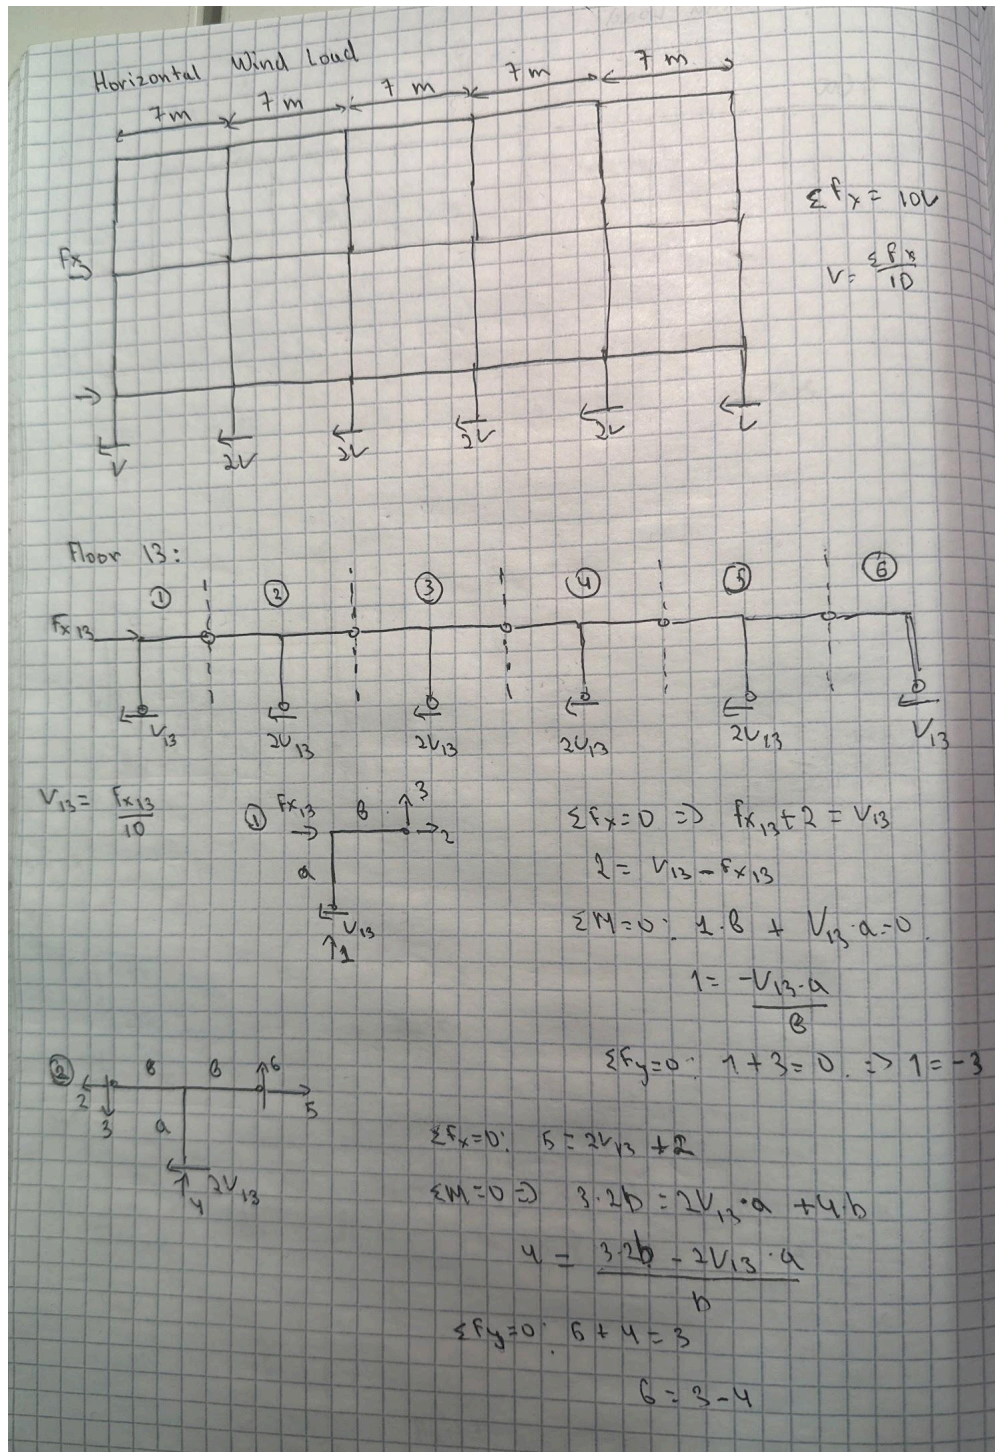 Horizontal Wind Load
7 m 7 m 7 m 7 m 7 m
Σfx = 10V
Fx
V = Σfx/10
V 2V 2V 2V 2V V
Floor 13:
① ② ③ ④ ⑤ ⑥
Fx13
V13 2V13 2V13 2V13 2V13 V13
V13 = Fx13/10
① Fx13 B 3 2 a V13 1
ΣFx=0 => fx13+2 = V13
2 = V13 - Fx13
ΣM=0: 1·B + V13·a=0.
1 = -V13·a/B
ΣFy=0: 1+3=0. => 1=-3
② B B 6 2 3 5 a 2V13 4
ΣFx=0: 5 = 2V13 +2
ΣM=0 => 3·2b = 2V13·a +4·b
4 = 3·2b - 2V13·a/b
ΣFy=0: 6+4=3
6 = 3-4